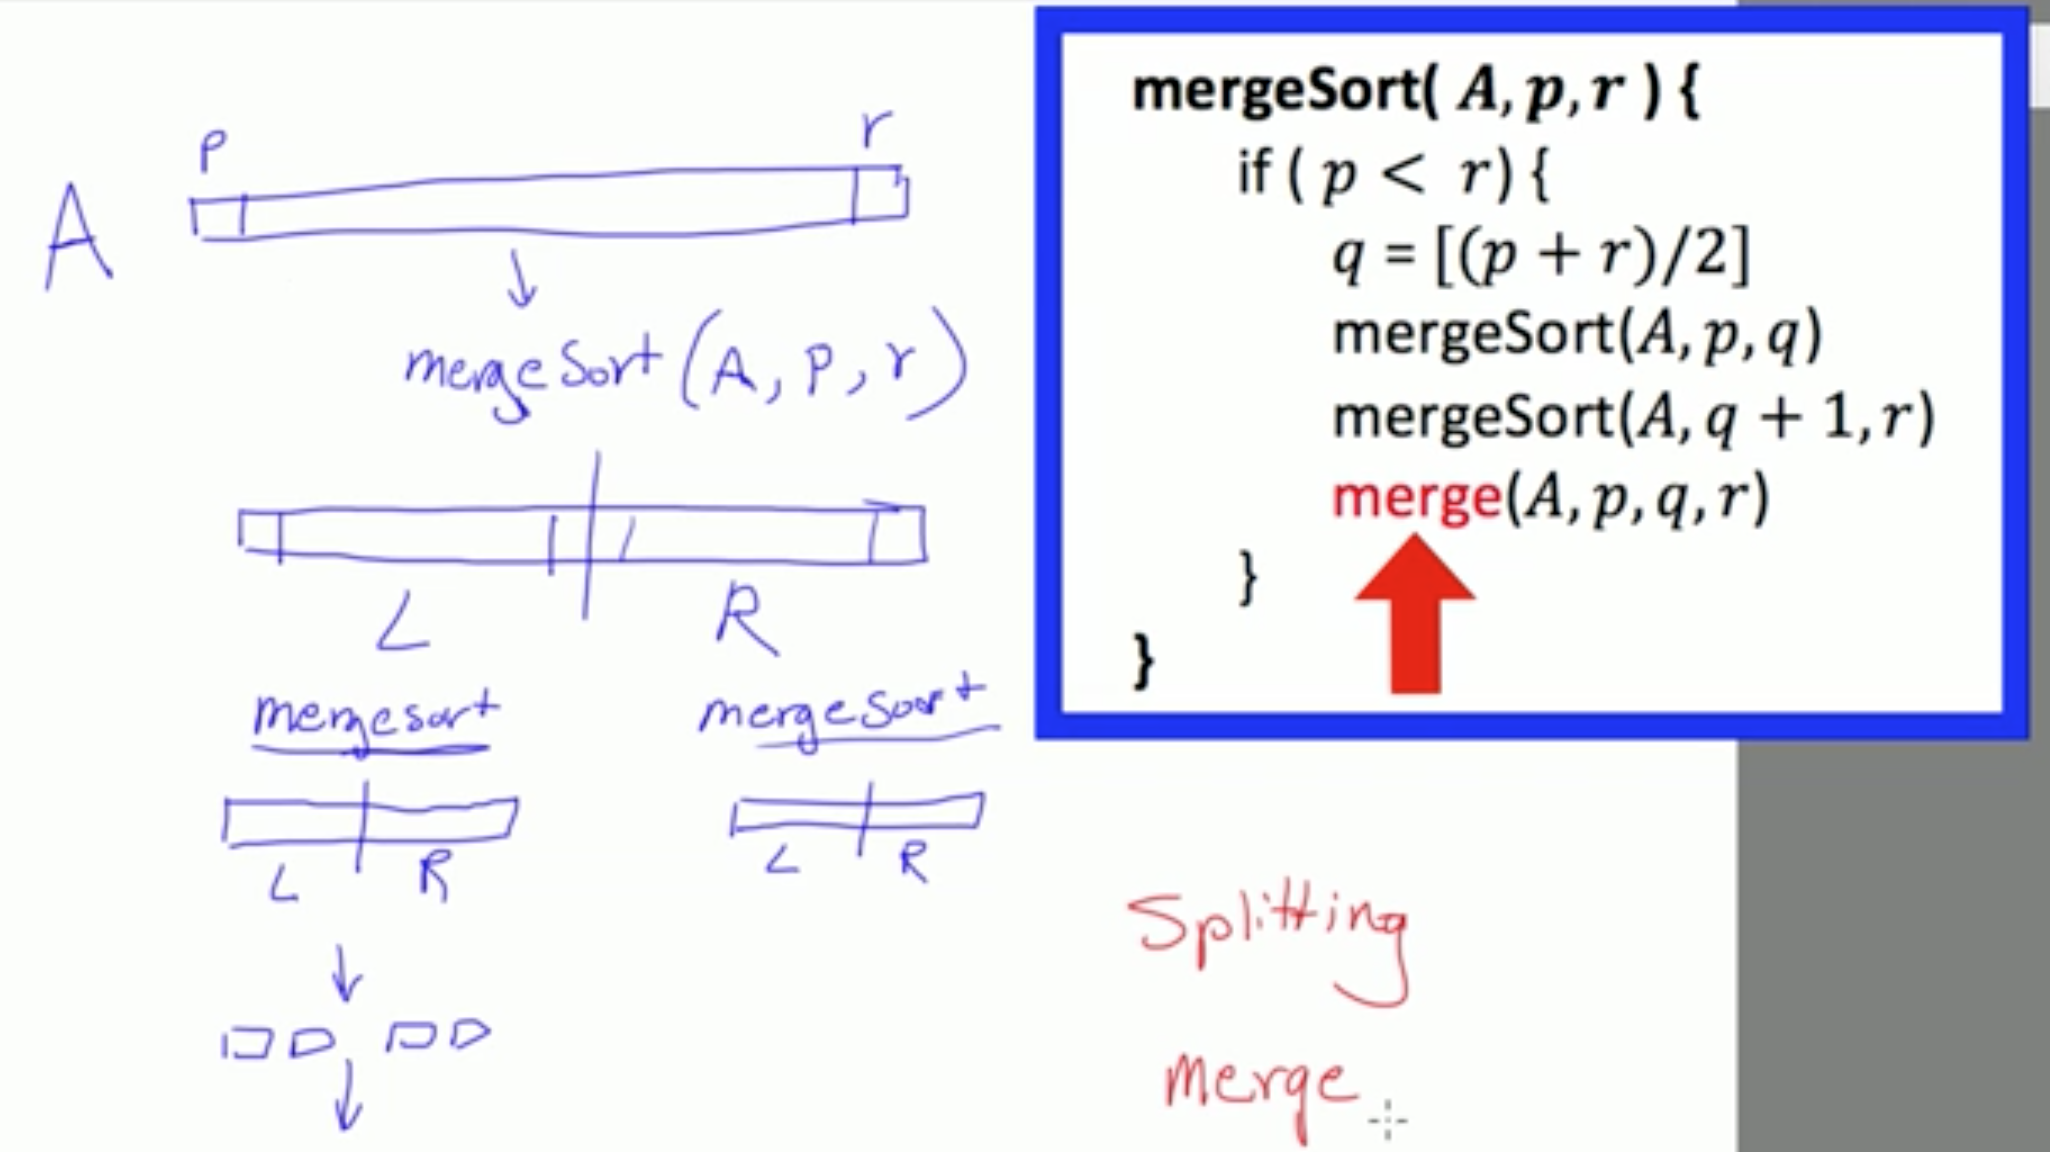 P
r
A
mergeSort(A, P, r)
L
R
mergesort
mergeSort
L
R
L
R
mergeSort( A, p, r ) {
if ( p < r) {
q = [(p + r)/2]
mergeSort(A, p, q)
mergeSort(A, q + 1, r)
merge(A, p, q, r)
}
}
Splitting
Merge